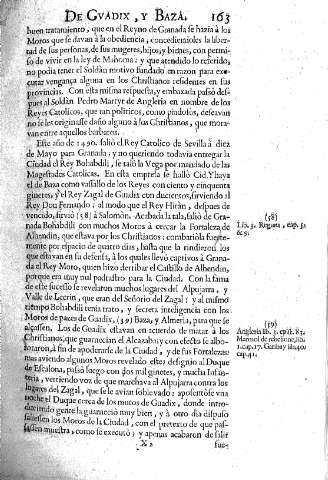 DE GVADIX, Y BAZA. 163
buen tratamiento, que en el Reyno de Granada se hazia à los
Moros que se davan à la obediencia, concediendoles la liber-
tad de sus personas, de sus mugeres, hijos, y bienes, con permi-
so de vivir en la ley de Mahoma: y que atendido lo referido,
no podia tener el Soldàn motivo fundado en razon para exe-
cutar vengança alguna en los Christianos residentes en sus
provincias. Con esta misma respuesta, y embaxada passò des-
pues al Soldàn Pedro Martyr de Angleria en nombre de los
Reyes Catolicos, que tan politicos, como piadosos, deseavan
no se les originasse daño alguno à los Christianos, que mora-
van entre aquellos barbaros.
Este año de 1490. saliò el Rey Catolico de Sevilla à diez
de Mayo para Granada; y no queriendo todavia entregar la
Ciudad el Rey Bohabdili, se talò la Vega por mandado de las
Magestades Catolicas. En esta empresa se hallò Cid Yhaya
el de Baza como vassallo de los Reyes con ciento y cinquenta
ginetes, y el Rey Zagal de Guadix con ducientos, sirviendo al
Rey Don Fernando; al modo que el Rey Hiràn, despues de
vencido, sirviò (58) à Salomòn. Acabada la tala, saliò de Gra-
nada Bohabdili con muchos Moros à cercar la Fortaleza de
Alhendin, que estava por los Christianos: combatiòla fuerte-
mente por espacio de quatro dias, hasta que la rindieron los
que estavan en su defensa, à los quales llevò captivos à Grana-
da el Rey Moro, quien hizo derribar el Castillo de Alhendin,
porque era muy mal padrastro para la Ciudad. Con la fama
de este sucesso se revelaron muchos lugares del Alpujarra, y
Valle de Lecrin, que eran del Señorio del Zagal: y al mismo
tiempo Bohabdili tenia trato, y secreta inteligencia con los
Moros de pazes de Guadix, (59) Baza, y Almeria, para que se
alçassen. Los de Guadix estavan en acuerdo de matar à los
Christianos, que guarnecian el Alcazaba; y con efecto se albo-
rotaron, à fin de apoderarse de la Ciudad, y de sus Fortalezas:
mas aviendo algunos Moros revelado este designio al Duque
de Escalona, passò luego con dos mil ginetes, y mucha Infan-
teria, vertiendo voz de que marchava al Alpujarra contra los
lugares del Zagal, que se le avian sobievado: aposentòse vna
noche el Duque cerca de los muros de Guadix, donde intro-
duciendo gente la guarneciò muy bien, y à otro dia dispuso
saliessen los Moros de la Ciudad, con el pretexto de que pas-
sassen muestra, como se executò; y apenas acabaron de salir
X 2 fue-
(58)
Lib. 3. Regum, cap. 5.
& 9.
(59)
Angleria lib. 3. epist. 83.
Marmol de rebelione, lib.
1. cap. 17. Garibay lib. 40.
cap. 41.